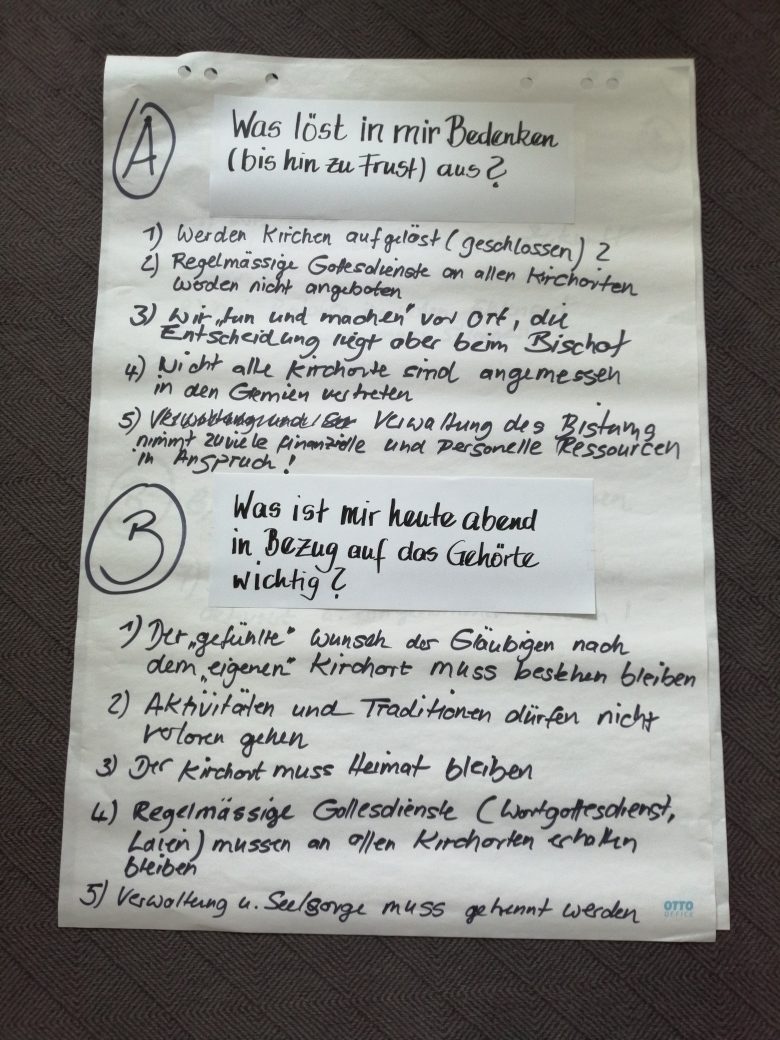 A
Was löst in mir Bedenken
(bis hin zu Frust) aus?
1) Werden Kirchen aufgelöst (geschlossen)?
2) Regelmässige Gottesdienste an allen Kirchorten
werden nicht angeboten
3) Wir „tun und machen" vor Ort, die
Entscheidung liegt aber beim Bischof
4) Nicht alle Kirchorte sind angemessen
in den Gremien vertreten
5) Verwaltung des Bistums
nimmt zuviele finanzielle und personelle Ressourcen
in Anspruch!
B
Was ist mir heute abend
in Bezug auf das Gehörte
wichtig?
1) Der „gefühlte" Wunsch der Gläubigen nach
dem „eigenen" Kirchort muss bestehen bleiben
2) Aktivitäten und Traditionen dürfen nicht
verloren gehen
3) Der Kirchort muss Heimat bleiben
4) Regelmässige Gottesdienste (Wortgottesdienst,
Laien) müssen an allen Kirchorten erhalten
bleiben
5) Verwaltung u. Seelsorge muss getrennt werden
OTTO
OFFICE